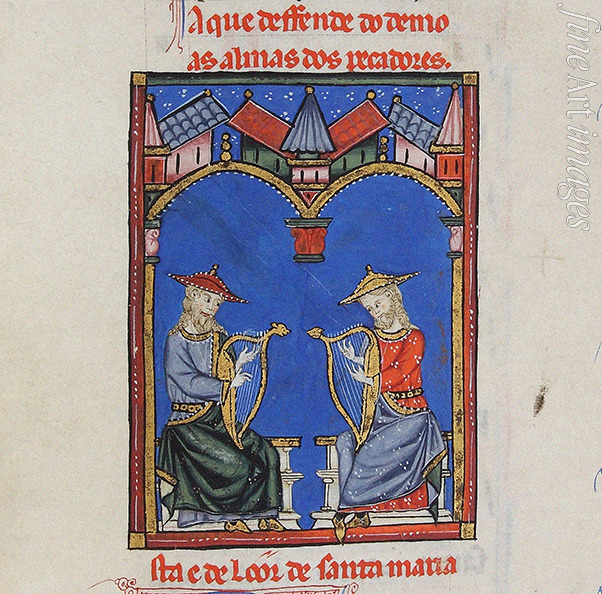 A que deffende do demo
as almas dos pecadores.
sta e de Loor de santa maria
fineArtimages